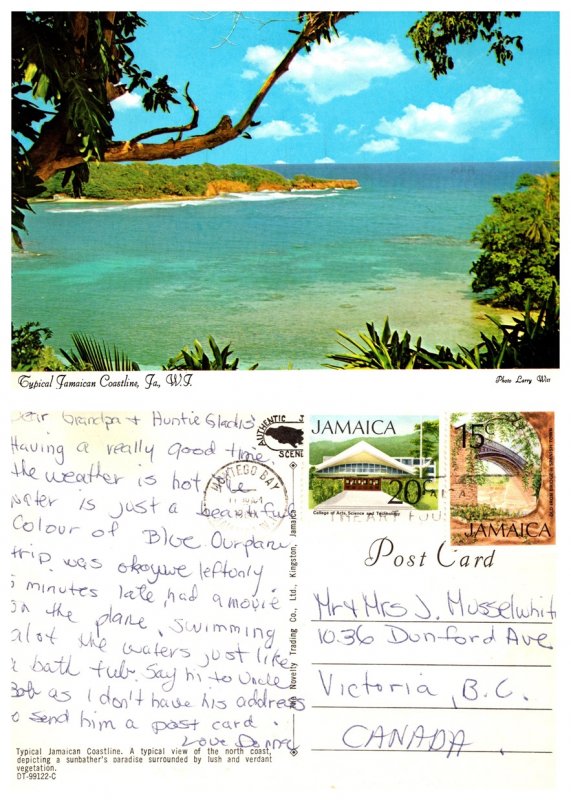 Typical Jamaican Coastline, Ja., W.I.
Photo Larry Witt
Dear Grandpa & Auntie Gladis
Having a really good time,
the weather is hot the
water is just a beautiful
Colour of Blue. Our plane
trip was okay we left only
5 minutes late, had a movie
on the plane, Swimming
alot the waters just like
a bath tub. Say hi to Uncle
Bob as I don't have his address
to send him a post card.
Love Donna
Typical Jamaican Coastline. A typical view of the north coast,
depicting a sunbather's paradise surrounded by lush and verdant
vegetation.
DT-99122-C
Novelty Trading Co., Ltd., Kingston, Jamaica
AUTHENTIC
SCENE
MONTEGO BAY
JAMAICA
20c
College of Arts, Science and Technology
15c
JAMAICA
Post Card
Mr & Mrs J. Musselwhit
1036 Dunford Ave
Victoria, B.C.
CANADA.